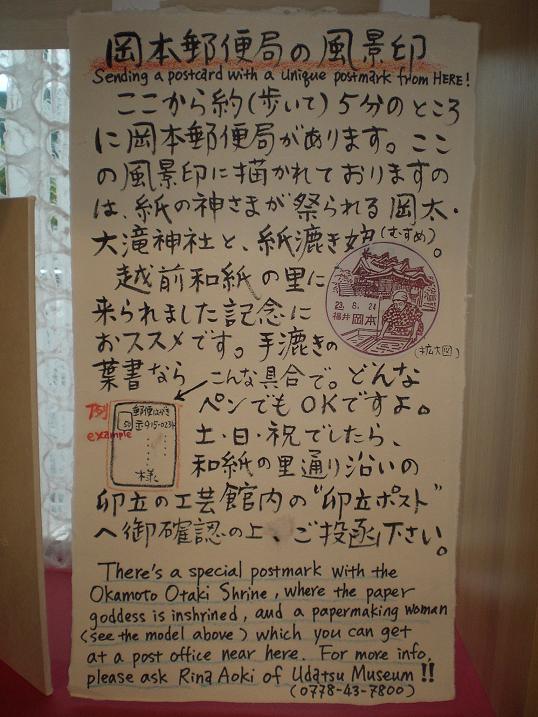 岡本郵便局の風景印
Sending a postcard with a unique postmark from HERE!
ここから約(歩いて)5分のところ
に岡本郵便局があります。ここ
の風景印に描かれておりますの
は、紙の神さまが祭られる岡太・
大滝神社と、紙漉き娘(むすめ)。
越前和紙の里に
来られました記念に
おススメです。手漉きの
葉書なら
23. 8. 24
福井 岡本
(拡大図)
こんな具合で。どんな
ペンでもOKですよ。
例
example
郵便はがき
印
〒915-0234
様
土・日・祝でしたら、
和紙の里通り沿いの
卯立の工芸館内の"卯立ポスト"
へ御確認の上、ご投函下さい。
There's a special postmark with the
Okamoto Otaki Shrine, where the paper
goddess is inshrined, and a papermaking woman
(see the model above) which you can get
at a post office near here. For more info,
please ask Rina Aoki of Udatsu Museum!!
(0778-43-7800)